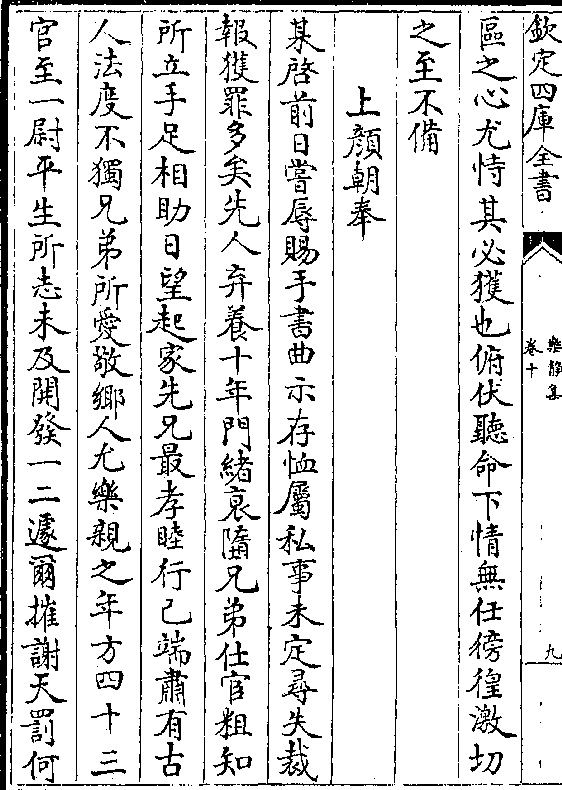 欽定四庫全書
樂靜集
卷十
九
區之心尤恃其必獲也俯伏聽命下情無任徬徨激切
之至不備
上顔朝奉
某啓前日嘗辱賜手書曲示存恤屬私事未定尋失裁
報獲罪多矣先人弃養十年門緒衰隳兄弟仕官粗知
所立手足相助日望起家先兄最孝睦行己端肅有古
人法度不獨兄弟所愛敬鄉人尤樂親之年方四十三
官至一尉平生所志未及開發一二遽爾摧謝天罰何